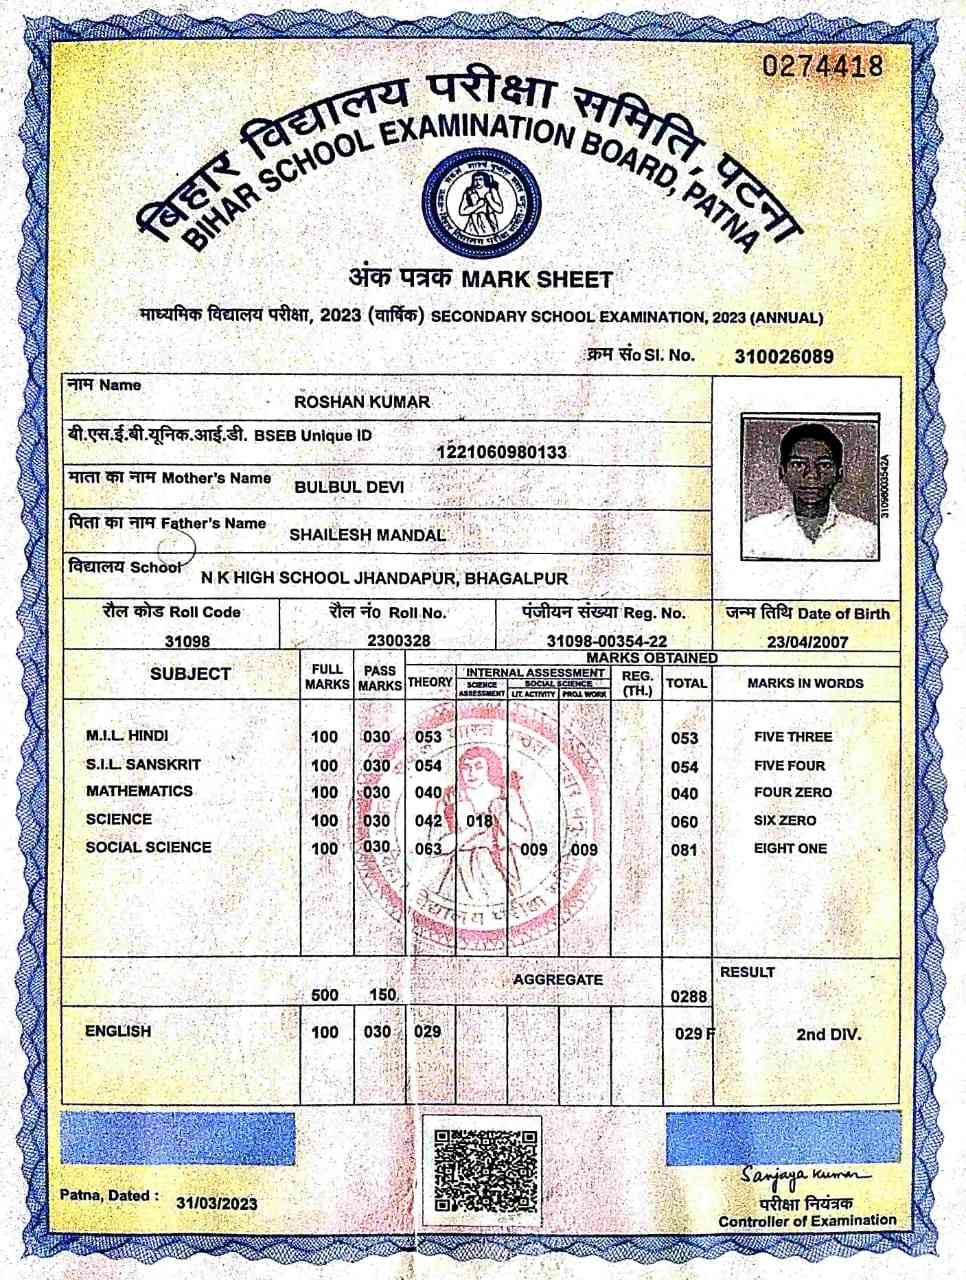 0274418
बिहार विद्यालय परीक्षा समिति, पटना
BIHAR SCHOOL EXAMINATION BOARD, PATNA
अंक पत्रक MARK SHEET
माध्यमिक विद्यालय परीक्षा, 2023 (वार्षिक) SECONDARY SCHOOL EXAMINATION, 2023 (ANNUAL)
क्रम सं० SI. No. 310026089
नाम Name
ROSHAN KUMAR
बी.एस.ई.बी.यूनिक.आई.डी. BSEB Unique ID
1221060980133
माता का नाम Mother's Name
BULBUL DEVI
पिता का नाम Father's Name
SHAILESH MANDAL
विद्यालय School
N K HIGH SCHOOL JHANDAPUR, BHAGALPUR
31098003542A
रौल कोड Roll Code रौल नं० Roll No. पंजीयन संख्या Reg. No. जन्म तिथि Date of Birth
31098 2300328 31098-00354-22 23/04/2007
MARKS OBTAINED
SUBJECT FULL MARKS PASS MARKS THEORY INTERNAL ASSESSMENT REG. (TH.) TOTAL MARKS IN WORDS
SCIENCE ASSESSMENT SOCIAL SCIENCE
LIT. ACTIVITY PROJ. WORK
M.I.L. HINDI 100 030 053 053 FIVE THREE
S.I.L. SANSKRIT 100 030 054 054 FIVE FOUR
MATHEMATICS 100 030 040 040 FOUR ZERO
SCIENCE 100 030 042 018 060 SIX ZERO
SOCIAL SCIENCE 100 030 063 009 009 081 EIGHT ONE
AGGREGATE RESULT
500 150 0288
ENGLISH 100 030 029 029 F 2nd DIV.
Sanjaya Kumar
Patna, Dated : 31/03/2023
परीक्षा नियंत्रक
Controller of Examination